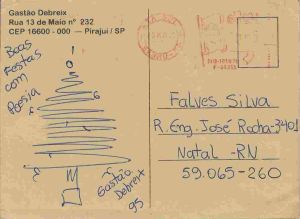 Gastão Debreix
Rua 13 de Maio nº 232
CEP 16600 - 000 — Pirajuí / SP
Boas
Festas
com
Poesia
Gastão
Debreix
95
Falves Silva
R. Eng. José Rocha-3401
Natal - RN
59.065-260